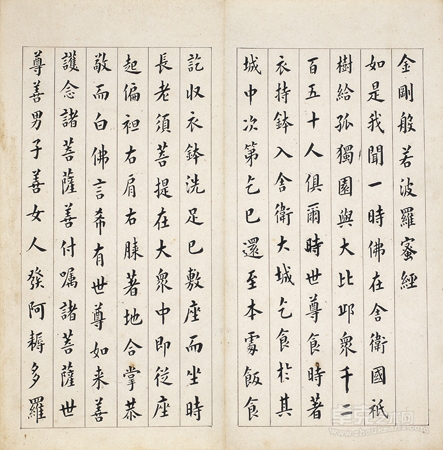 金剛般若波羅蜜經
如是我聞一時佛在舍衛國祇
樹給孤獨園與大比邱衆千二
百五十人俱爾時世尊食時著
衣持鉢入舍衛大城乞食於其
城中次第乞已還至本處飯食
訖收衣鉢洗足已敷座而坐時
長老須菩提在大衆中即從座
起偏袒右肩右膝著地合掌恭
敬而白佛言希有世尊如来善
護念諸菩薩善付囑諸菩薩世
尊善男子善女人發阿耨多羅